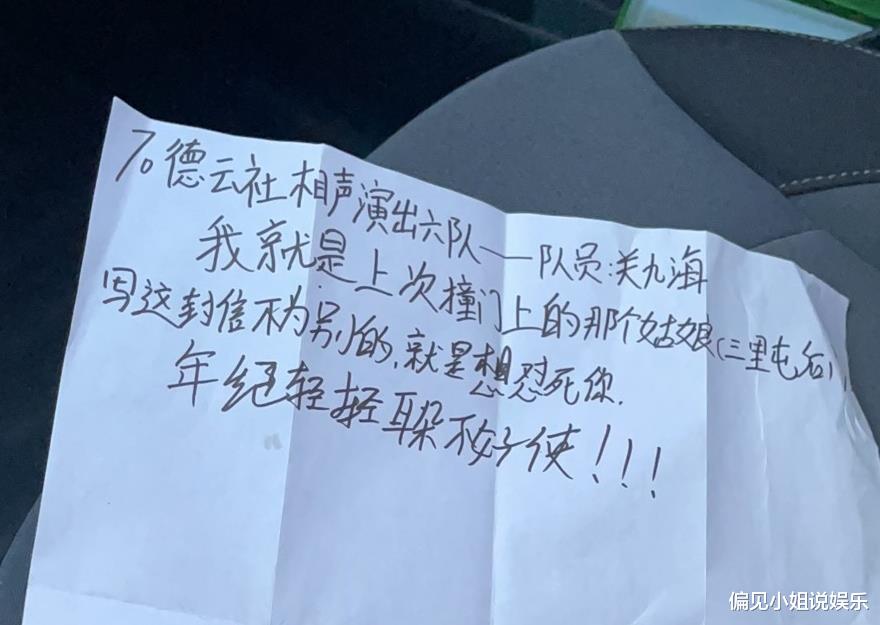 To 德云社相声演出六队——队员:关九海
我就是上次撞门上的那个姑娘(三里屯后),
写这封信不为别的,就是想怼死你.
年纪轻轻耳朵不好使!!!
偏见小姐说娱乐